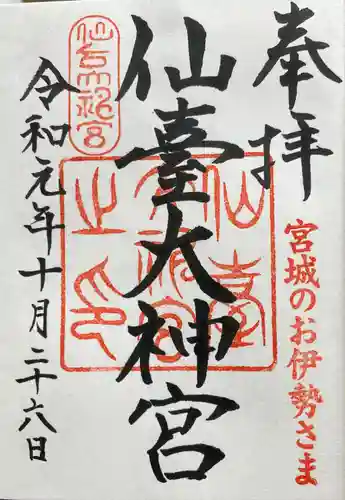 奉拝
宮城のお伊勢さま
仙臺大神宮
仙台大神宮
令和元年十月二十六日